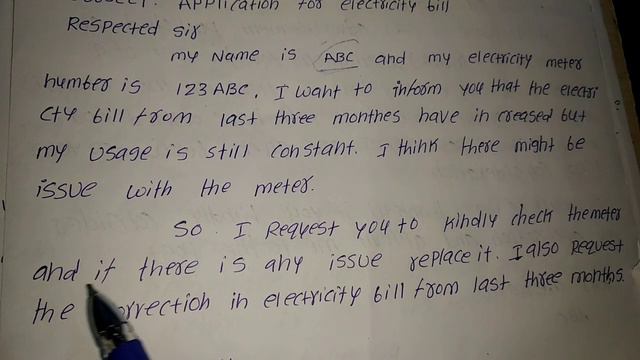 Application for electricity bill
Respected sir
my Name is ABC and my electricity meter
number is 123ABC. I want to inform you that the electri
cty bill from last three monthes have in creased but
my usage is still constant. I think there might be
issue with the meter.
So I Request you to kindly check the meter
and if there is any issue replace it. I also Request
the orrection in electricity bill from last three months.